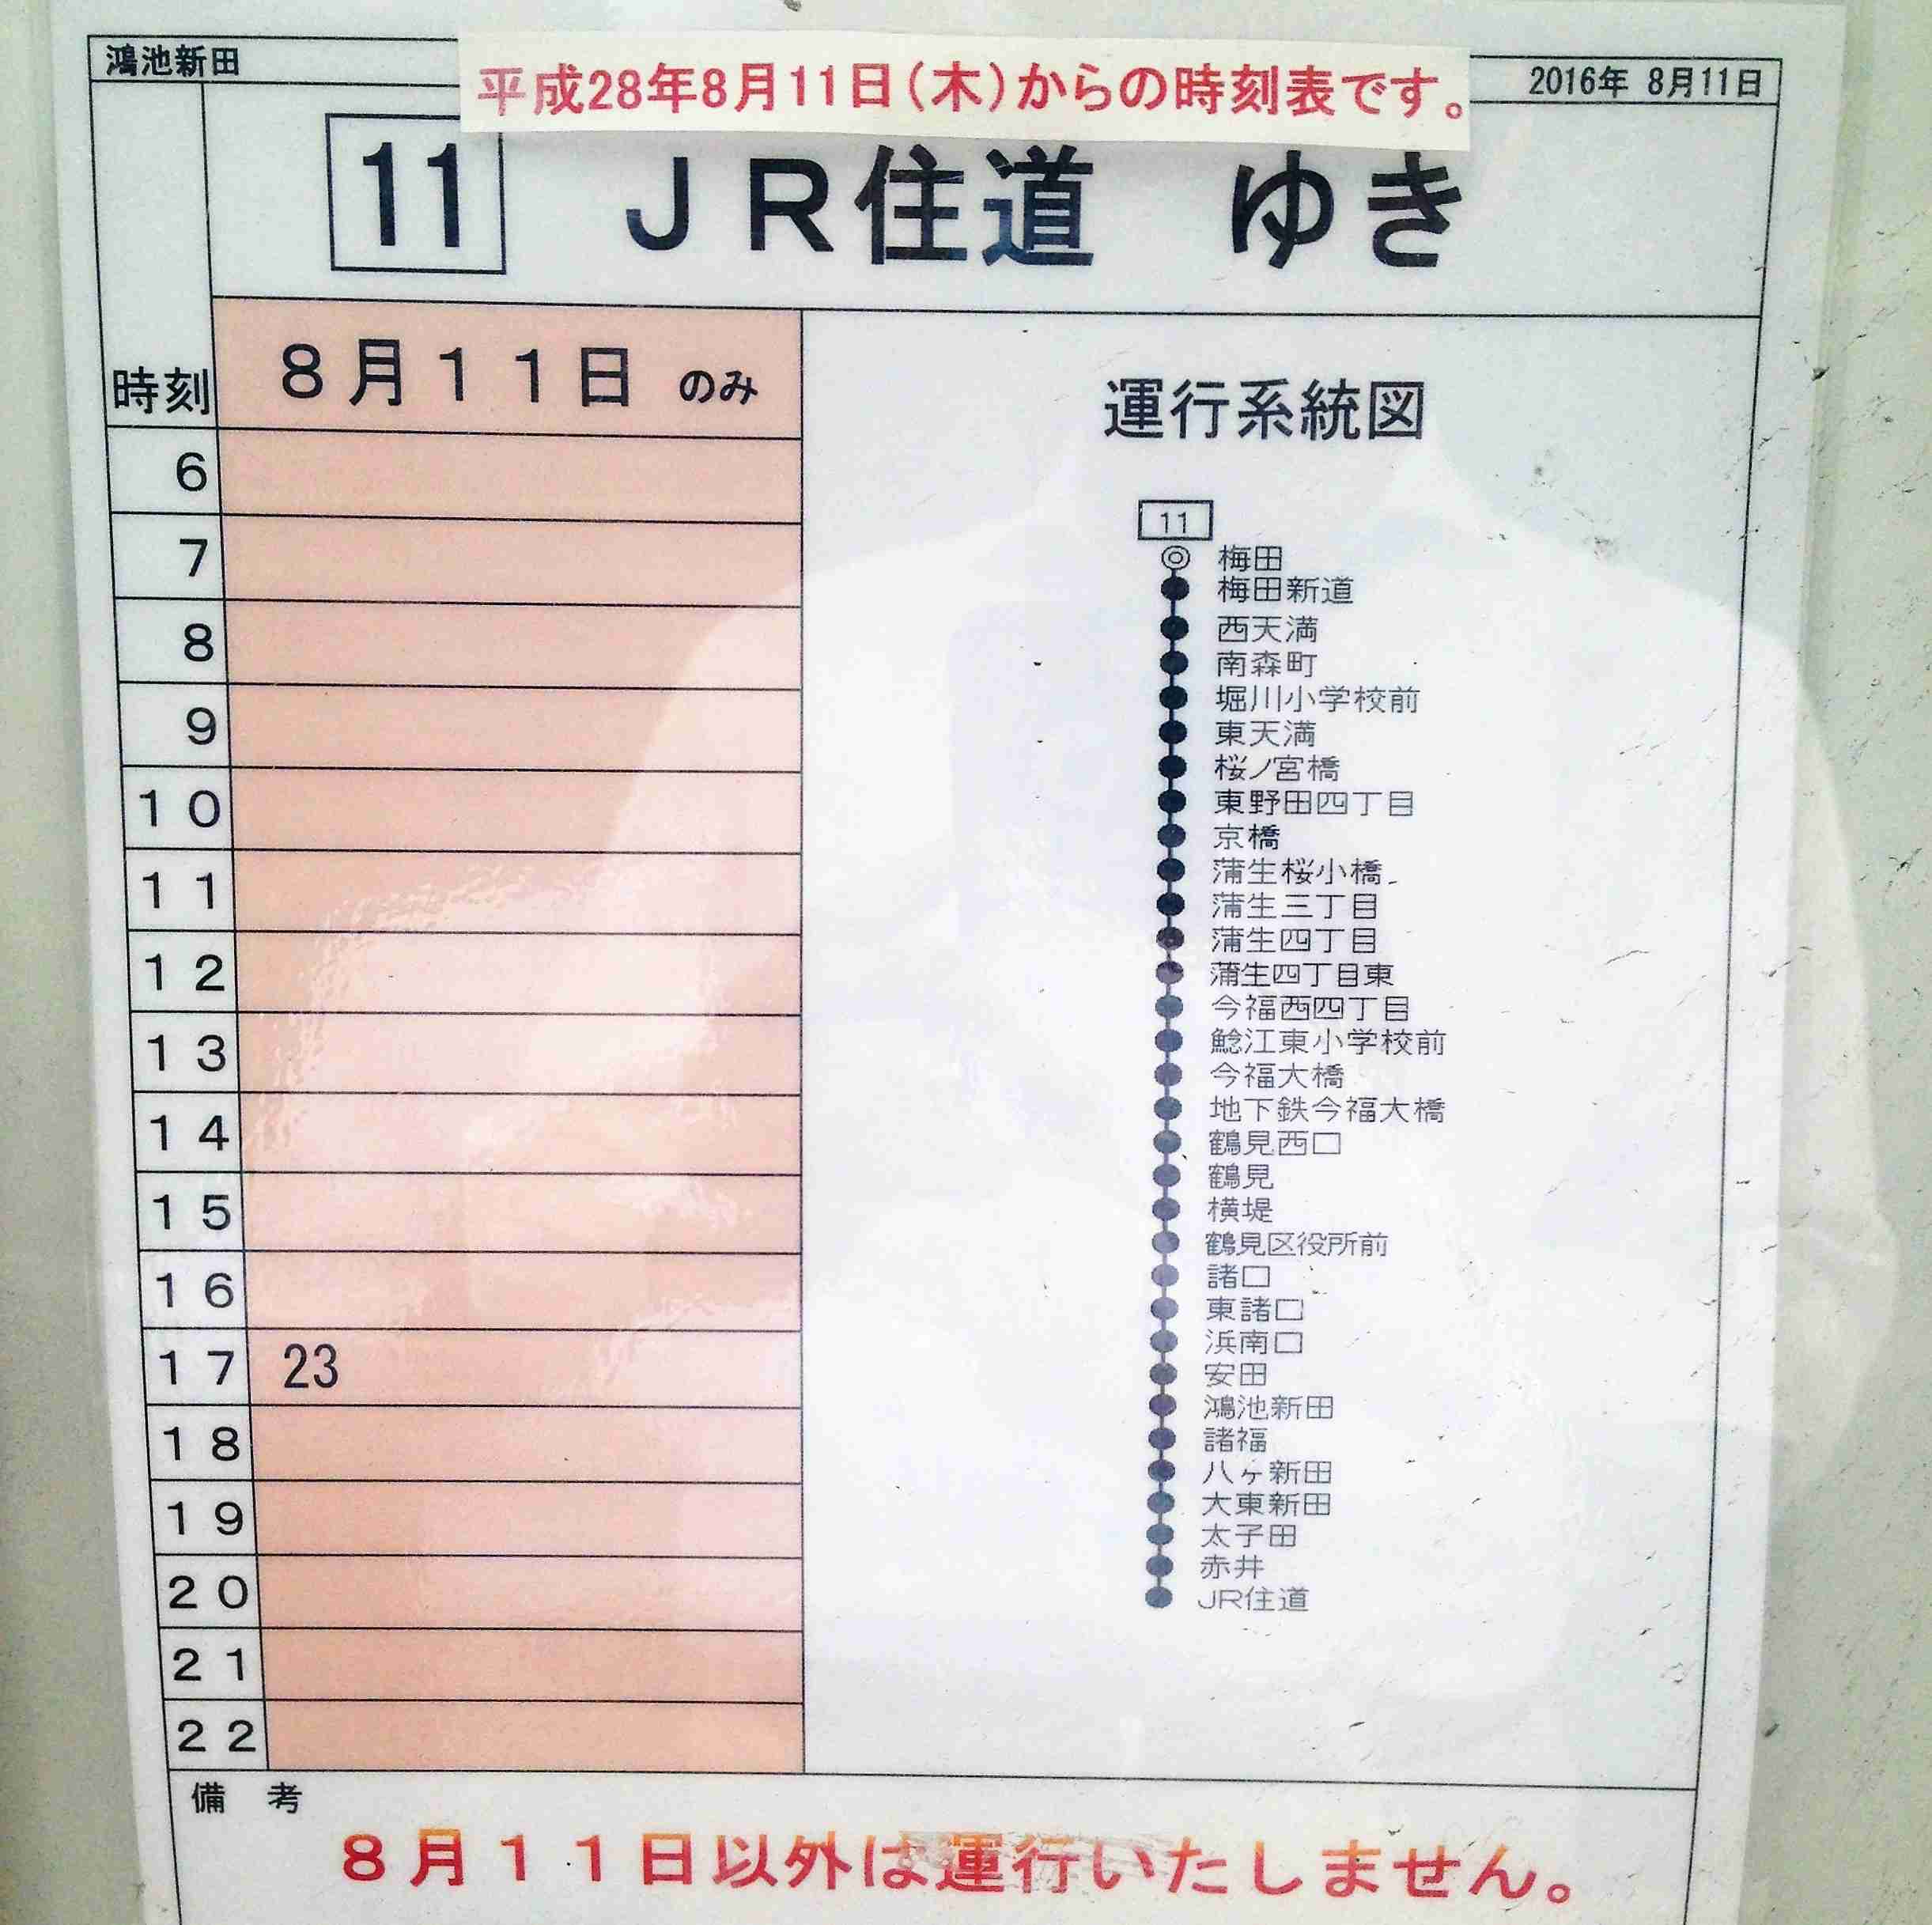 鴻池新田
平成28年8月11日(木)からの時刻表です。
2016年 8月11日
11 JR住道 ゆき
時刻
8月11日 のみ
6
7
8
9
10
11
12
13
14
15
16
17 23
18
19
20
21
22
運行系統図
11
梅田
梅田新道
西天満
南森町
堀川小学校前
東天満
桜ノ宮橋
東野田四丁目
京橋
蒲生桜小橋
蒲生三丁目
蒲生四丁目
蒲生四丁目東
今福西四丁目
鯰江東小学校前
今福大橋
地下鉄今福大橋
鶴見西口
鶴見
横堤
鶴見区役所前
諸口
東諸口
浜南口
安田
鴻池新田
諸福
八ヶ新田
大東新田
太子田
赤井
JR住道
備 考
8月11日以外は運行いたしません。